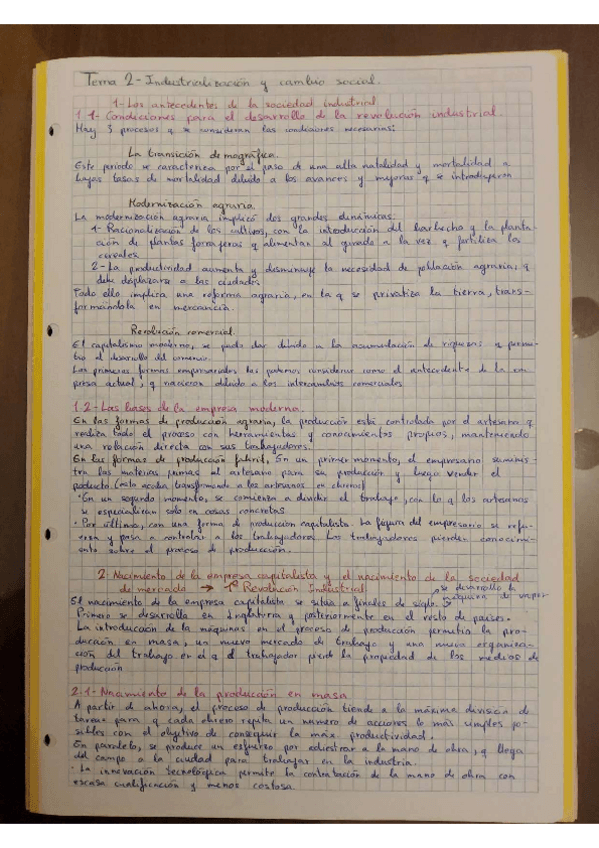 Tema 2- Industrialización y cambio social.
1- Los antecedentes de la sociedad industrial
1.1- Condiciones para el desarrollo de la revolución industrial.
Hay 3 procesos q se consideran las condiciones necesarias:
La transición demográfica.
Este período se caracteriza por el paso de una alta natalidad y mortalidad a
bajas tasas de mortalidad debido a los avances y mejoras q se introdujeron
Modernización agraria.
La modernización agraria implicó dos grandes dinámicas:
1- Racionalización de los cultivos, con la introducción del barbecho y la planta-
ción de plantas forrajeras q alimentan al ganado a la vez q fertiliza los
cereales
2- La productividad aumenta y disminuye la necesidad de población agraria, q
debe desplazarse a las ciudades.
Todo ello implica una reforma agraria, en la q se privatiza la tierra, trans-
formándola en mercancía.
Revolución comercial.
El capitalismo moderno, se pudo dar debido a la acumulación de riquezas q permi-
tió el desarrollo del comercio.
Las primeras formas empresariales las podemos considerar como el antecedente de la em
presa actual, q nacieron debido a los intercambios comerciales
1.2- Las bases de la empresa moderna.
En las formas de producción agraria, la producción está controlada por el artesano q
realiza todo el proceso con herramientas y conocimientos propios, manteniendo
una relación directa con sus trabajadores.
En las formas de producción fabril, En un primer momento, el empresario suminis-
tra las materias primas al artesano para su producción y luego vender el
producto. (esto acaba transformando a los artesanos en obreros)
· En un segundo momento, se comienza a dividir el trabajo, con lo q los artesanos
se especializan solo en cosas concretas.
· Por último, con una forma de producción capitalista. La figura del empresario se refu-
erza y pasa a controlar a los trabajadores. Los trabajadores pierden conocimi-
ento sobre el proceso de producción.
2 Nacimiento de la empresa capitalista y el nacimiento de la sociedad
de mercado → 1ª Revolución Industrial
se desarrolla la
máquina de vapor
El nacimiento de la empresa capitalista se sitúa a finales de siglo.
Primero se desarrolla en Inglaterra y posteriormente en el resto de países.
La introducción de la máquinas en el proceso de producción permitió la pro-
ducción en masa, un nuevo mercado de trabajo y una nueva organiza-
ción del trabajo en el q el trabajador pierde la propiedad de los medios de
producción
2.1- Nacimiento de la producción en masa
A partir de ahora, el proceso de producción tiende a la máxima división de
tareas para q cada obrero repita un número de acciones lo más simples po-
sibles con el objetivo de conseguir la máx productividad.
En paralelo, se produce un esfuerzo por adiestrar a la mano de obra, q llega
del campo a la ciudad para trabajar en la industria.
· La innovación tecnológica permite la contratación de la mano de obra con
escasa cualificación y menos costosa.